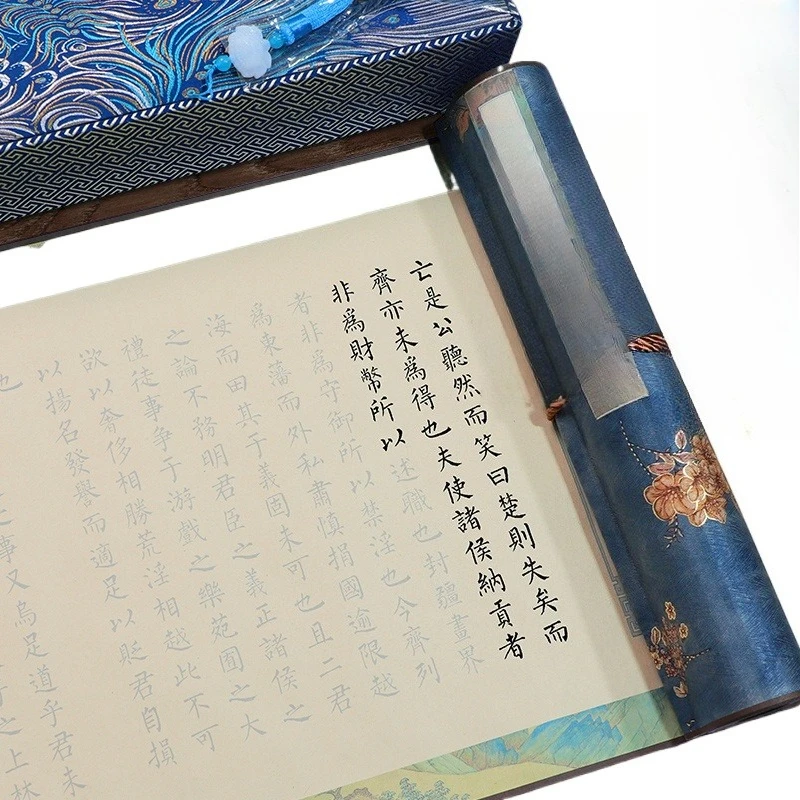 亡是公聽然而笑曰楚則失矣而
齊亦未爲得也夫使諸侯納貢者
非爲財幣所以述職也封疆畫界
者非爲守御所以禁淫也今齊列
爲東藩而外私肅慎捐國逾限越
海而田其于義固未可也且二君
之論不務明君臣之義正諸侯之
禮徒事争于游戲之樂苑囿之大
欲以奢侈相勝荒淫相越此不可
以揚名發譽而適足以貶君自損
也之事又烏足道乎君未
之上林